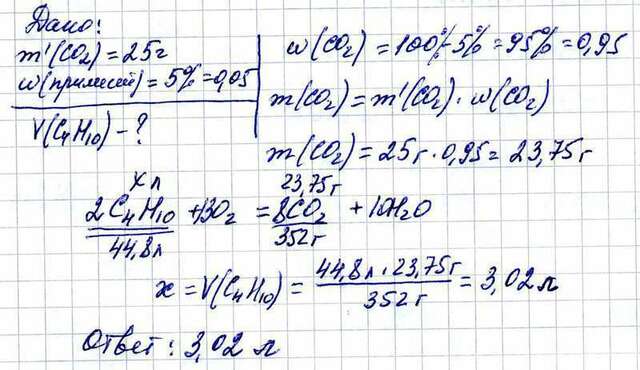 Дано:
m'(CO₂) = 25г
w(примесей) = 5% = 0,05
V(C₄H₁₀) - ?
w(CO₂) = 100% - 5% = 95% = 0,95
m(CO₂) = m'(CO₂) · w(CO₂)
m(CO₂) = 25г · 0,95 = 23,75г
x л 23,75г
2C₄H₁₀ + 13O₂ = 8CO₂ + 10H₂O
44,8л 352г
x = V(C₄H₁₀) = 44,8л · 23,75г / 352г = 3,02 л
Ответ: 3,02 л